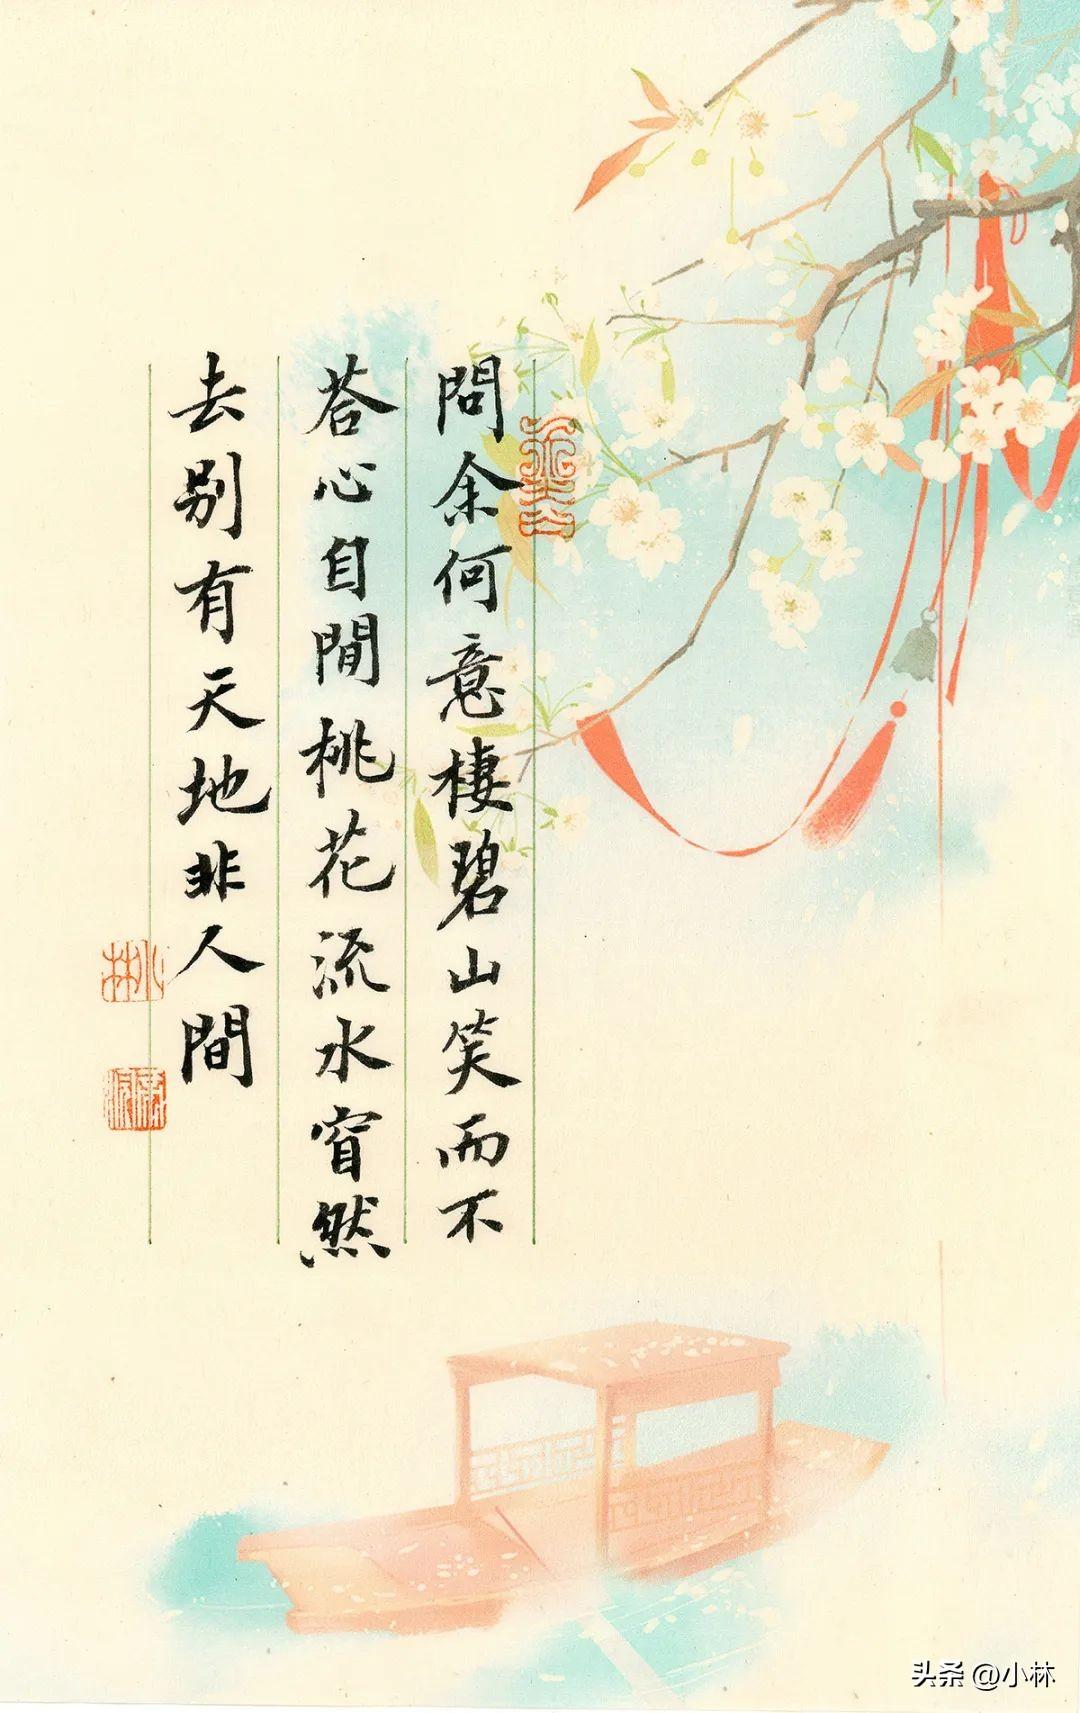 問余何意棲碧山笑而不
荅心自閒桃花流水窅然
去别有天地非人間
小林
头条 @小林